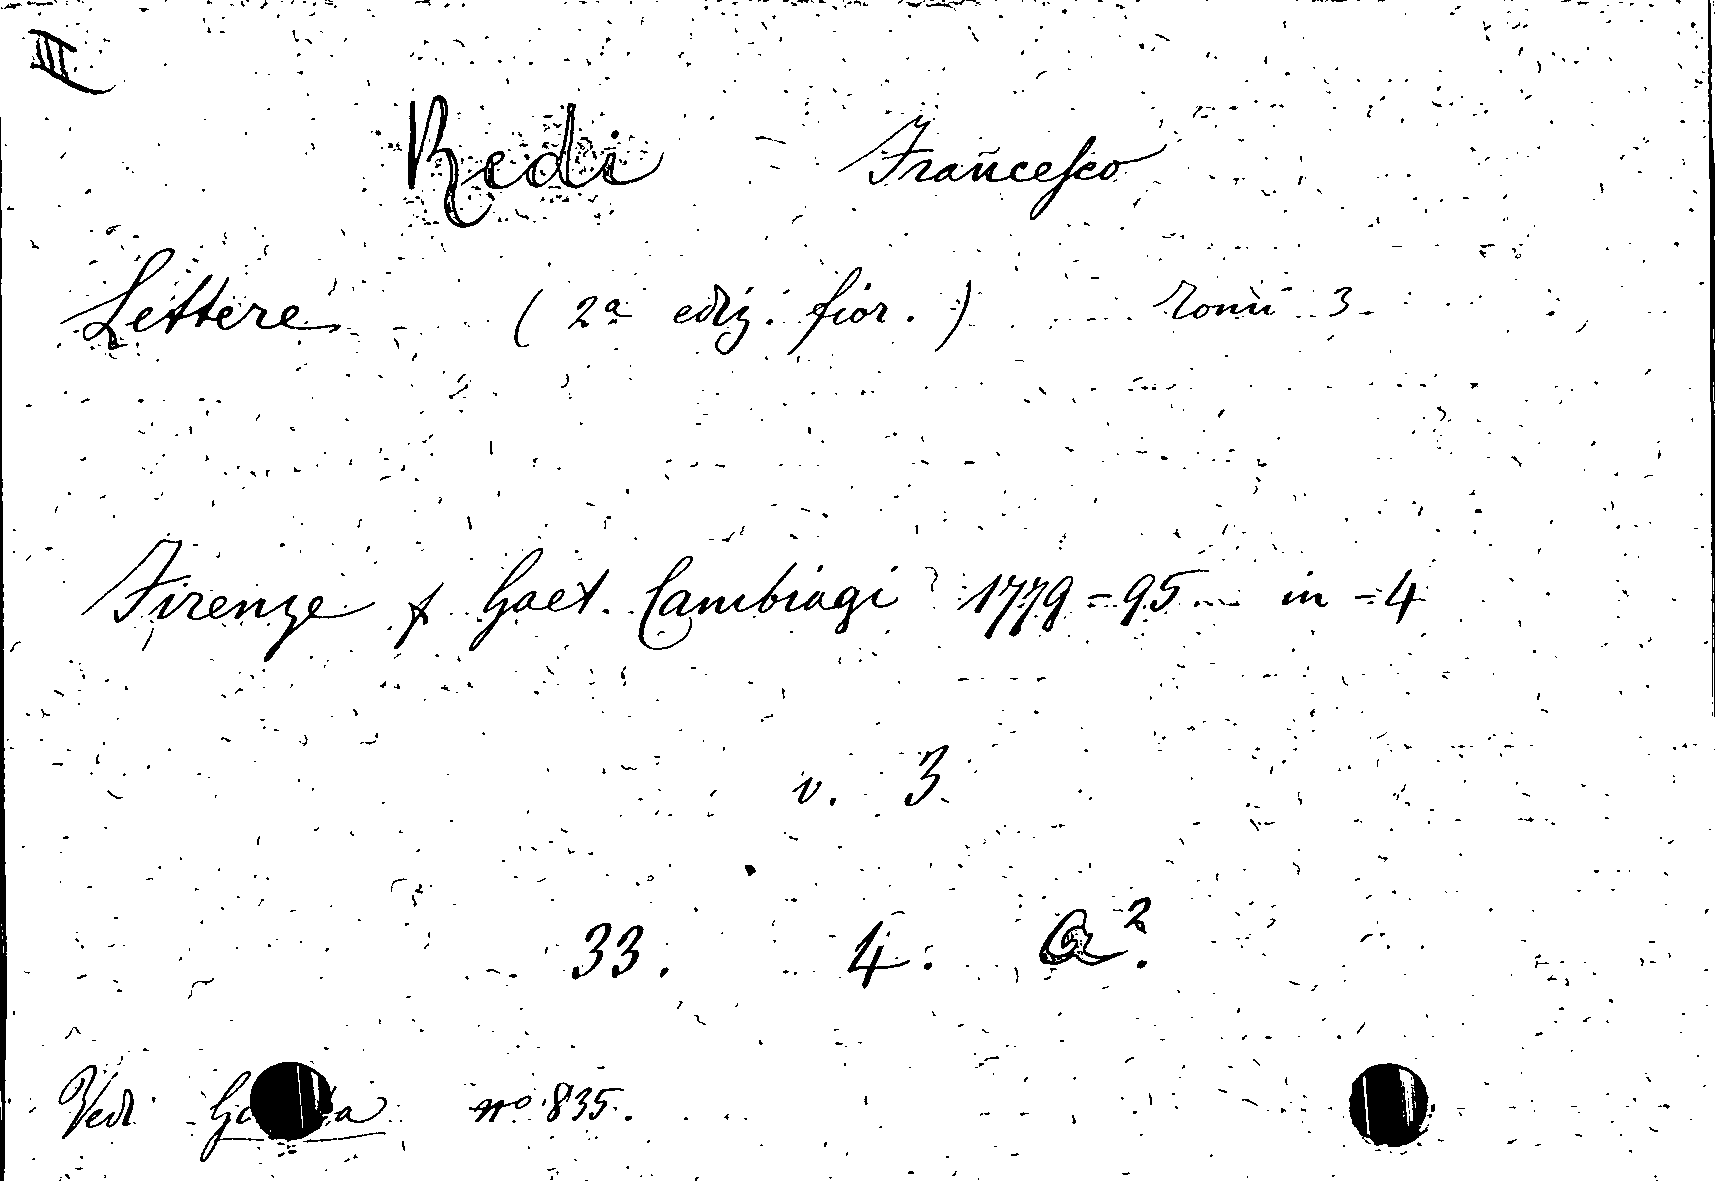 III
Redi Francesco
Lettere (2ª ediz. fior.) Tomi 3.
Firenze p Gaet. Cambiagi 1779=95 in=4
v. 3.
33. 4. a².
Ved. nº 835.